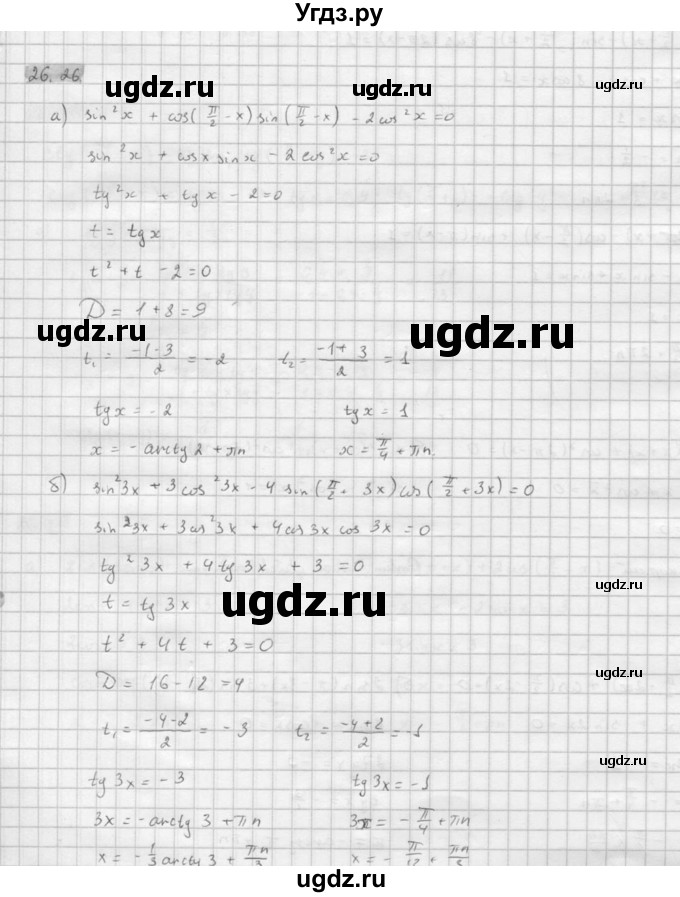 Угдз.ру
26.26
ugdz.ru ugdz.ru
а) sin²x + cos(π/2 - x) sin(π/2 - x) - 2cos²x = 0
sin²x + cosx sinx - 2cos²x = 0
tg²x + tgx - 2 = 0
t = tgx
t² + t - 2 = 0
D = 1 + 8 = 9
ugdz.ru ugdz.ru
t₁ = (-1-3)/2 = -2 t₂ = (-1+3)/2 = 1
tgx = -2 tgx = 1
x = -arctg2 + πn x = π/4 + πn
б) sin²3x + 3cos²3x - 4 sin(π/2 + 3x) cos(π/2 + 3x) = 0
sin²3x + 3cos²3x + 4cos3x cos 3x = 0
tg²3x + 4tg3x + 3 = 0
ugdz.ru
t = tg 3x
ugdz.ru
t² + 4t + 3 = 0
D = 16 - 12 = 4
t₁ = (-4-2)/2 = -3 t₂ = (-4+2)/2 = -1
ugdz.ru
tg 3x = -3 tg3x = -1
3x = -arctg 3 + πn 3x = -π/4 + πn
x = -1/3 arctg 3 + πn/3 x = -π/12 + πn/3
ugdz.ru